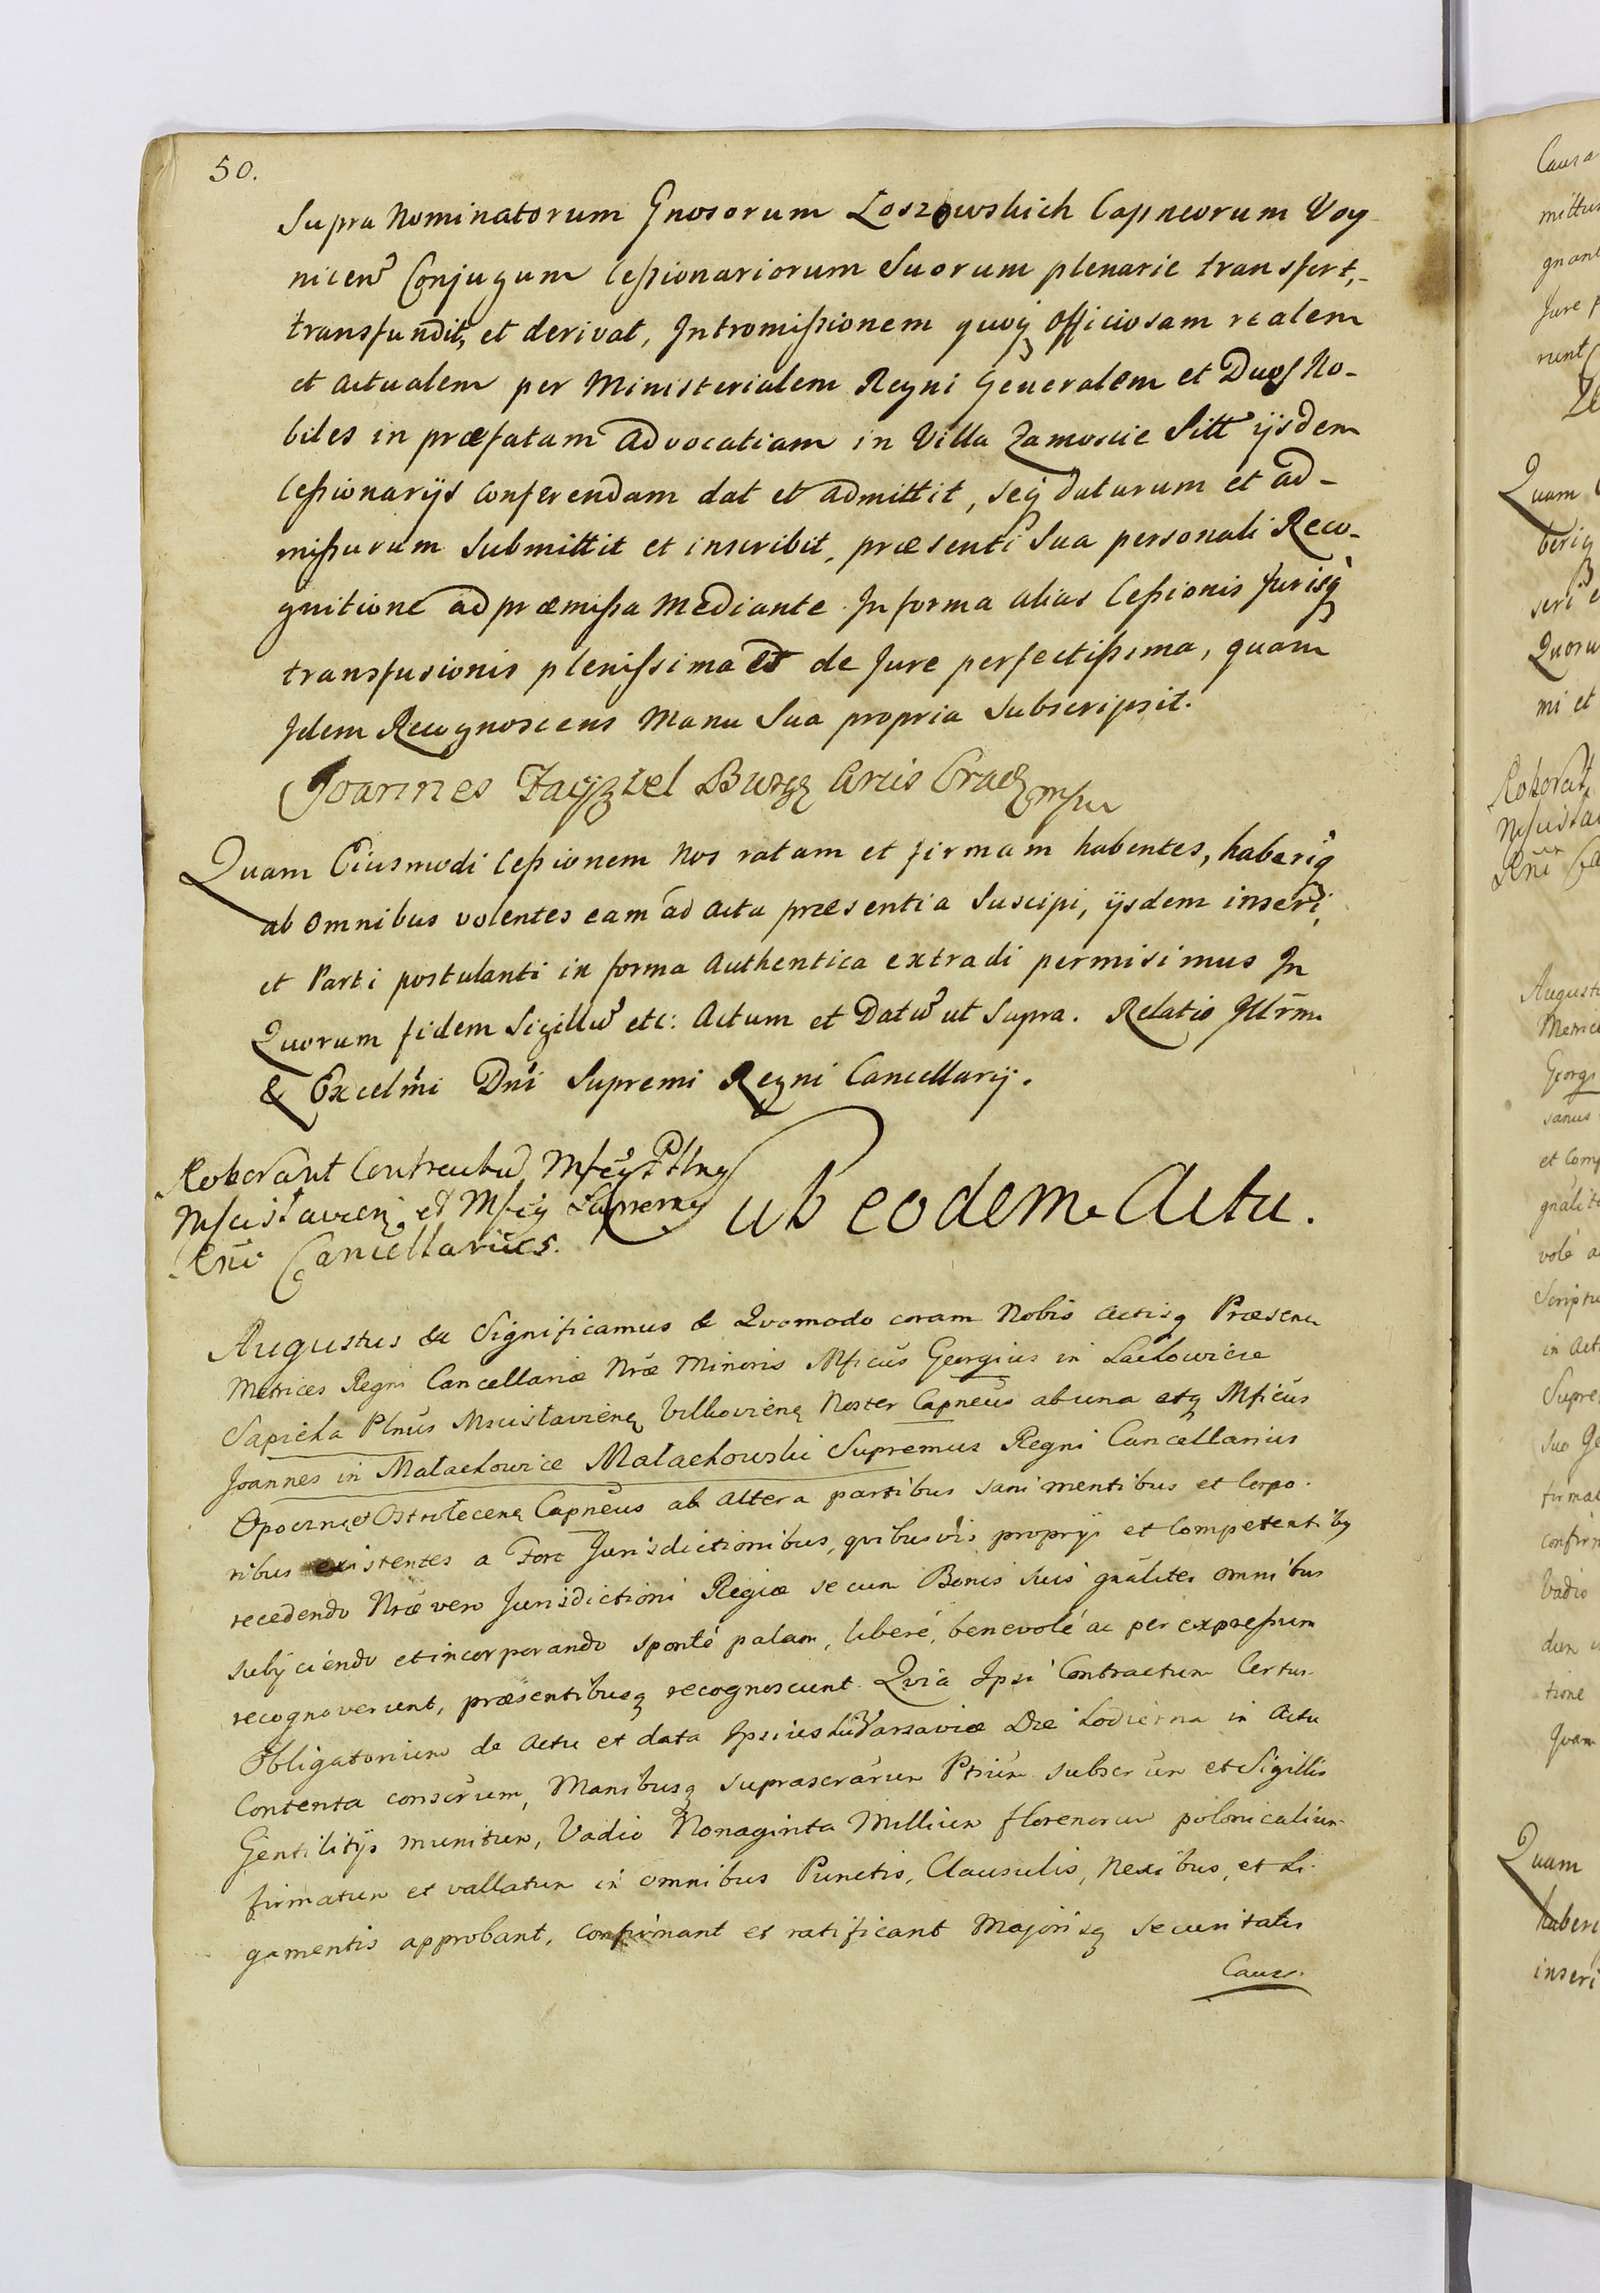 50.
Supra Nominatorum Gnosorum Loszowskich Capneorum Voy
nicen Conjugum Cessionariorum Suorum plenarie transfert,
transfundit, et derivat, Intromissionem quoq officiosam realem
et actualem per Ministerialem Regni Generalem et Duos No-
biles in præfatam advocatiam in Villa Zamoscie Sitt ijsdem
Cessionarijs conferendam dat et admittit, seq daturum et ad-
missurum submittit et inscribit, præsenti sua personali Reco-
gnitione ad præmissa mediante. In forma alias Cessionis Jurisq
transfusionis plenissima et de Jure perfectissima, quam
Idem Recognoscens Manu Sua propria Subscripsit.
Joannes Burg Arcis Crac mpr
Quam Eiusmodi Cessionem Nos ratam et firmam habentes, haberiq
ab omnibus volentes eam ad acta præsentia Suscipi, ijsdem inseri,
et Parti postulanti in forma Authentica extradi permisimus In
Quorum fidem Sigillu etc: Actum et Datu ut Supra. Relatio Illrm
& Excelmi Dni Supremi Regni Cancellarij.
Roborant Contractu Mfcy Plny
Mscislavien et Mfcy Supremy
Rni Cancellarius.
Sub eodem Actu.
Augustus &c Significamus & Quomodo coram Nobis Actisq Præsen
Metrices Regni Cancellariæ Nræ Minoris Mficus Georgius in Lachowicze
Sapieha Plnus Mscislavienq Vilkovienq Noster Capneus ab una etq Mficus
Joannes in Małachowice Małachowski Supremus Regni Cancellarius
Opocznq et Ostrołecenq Capneus ab altera partibus sani mentibus et Corpo-
ribus existentes a Foro Jurisdictionibus, quibusvis proprijs et Competentiby
recedendo Nræ vero Jurisdictioni Regiæ se cum Bonis suis gnaliter omnibus
subijciendo et incorporando sponté palam, liberé, benevolé ac per expressum
recognoverunt, præsentibusq recognoscunt. Quia Ipsi Contractum Certum
Obligatorium de Actu et data Ipsius hic Varsaviæ Die hodierna in Actu
Contenta conscrum, Manibusq suprascrarum Ptium subscrum et Sigillis
Gentilitijs munitum, Vadio Nonaginta Millium florenorum polonicalium
firmatum et vallatum in omnibus Punctis, Clausulis, Nexibus, et Li-
gamentis approbant, confirmant et ratificant Majorisq securitatis
Caus.